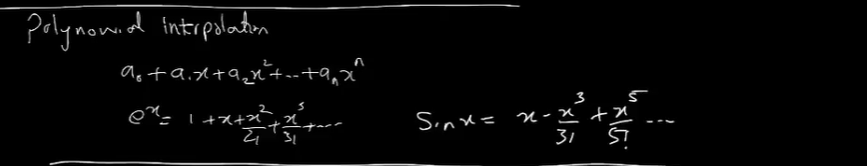 Polynomial interpolation
a₀+a₁x+a₂x²+...+aₙxⁿ
eˣ = 1+x+x²/2!+x³/3!+---- Sinx = x-x³/3!+x⁵/5! ---